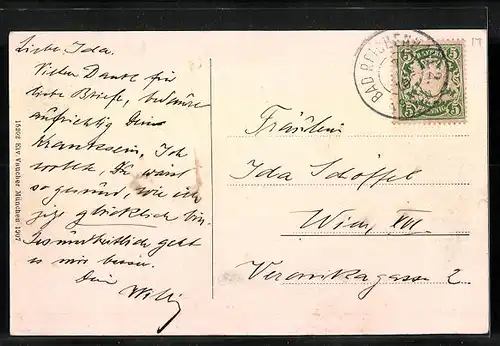 Liebe Ida.
Vielen Dank für
liebe Briefe, bedaure
aufrichtig Dein
Kranksein. Ich
wollte, Du wärst
so gesund, wie ich
jetzt glücklich bin.
Gesundheitlich geht
es mir besser.
Dein
Willy
15202 Kty Vaucher München 1907
BAD REICHENHALL
BAYERN
5 5
5 5
Fräulein
Ida Schöffel
Wien, XVI
Veronikagasse 2